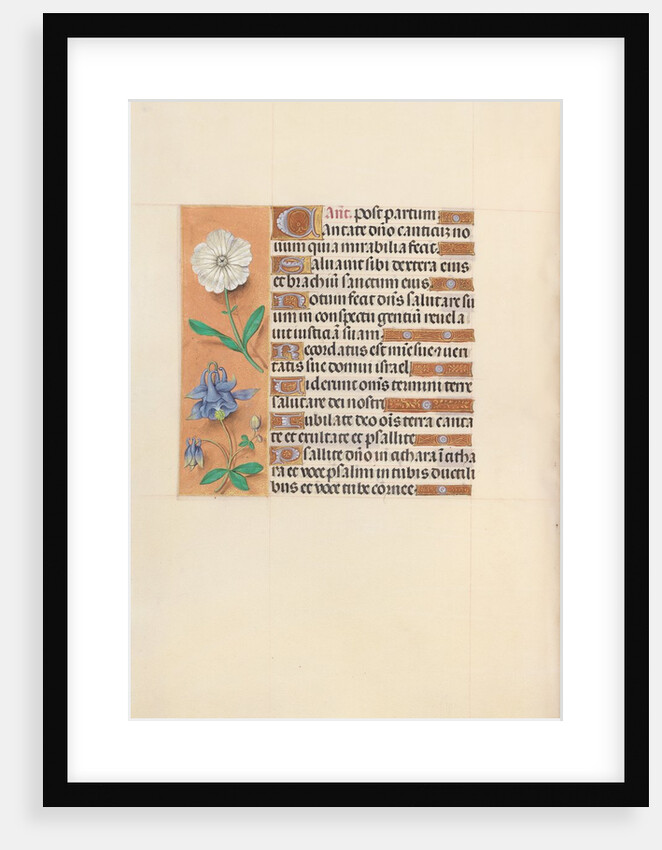 Añt. Post partum.
Cantate dño canticũ no
uum quia mirabilia fecit.
Saluauit sibi dextera eius
et brachiũ sanctum eius.
Notum fecit dñs salutare su
um in conspectu gentiũ reuela
uit iusticiã suam.
Recordatus est mĩe sue ⁊ ueri
tatis sue domui israel.
Uiderunt om̃s termini terre
salutare dei nostri
Iubilate deo oĩs terra canta
te et exultate et psallite
Psallite dño in cithara ĩ citha
ra et uoce psalmi in tubis ductili
bus et uoce tube cornee.